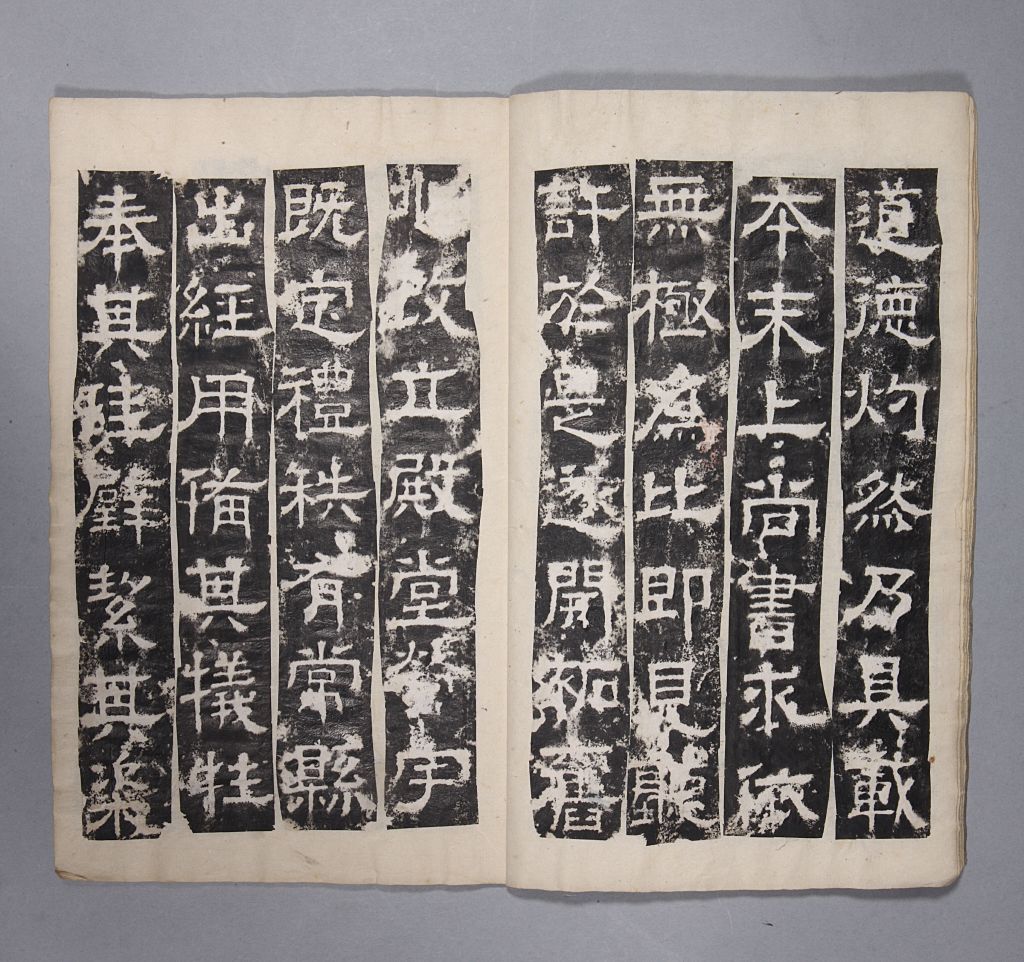 道德灼然乃具載
本末上尚書求依
無極為比即見聽
許於是遂開拓舊
兆改立殿堂營宇
既定禮秩有常縣
出經用備其犧牲
奉其珪璧絜其粢